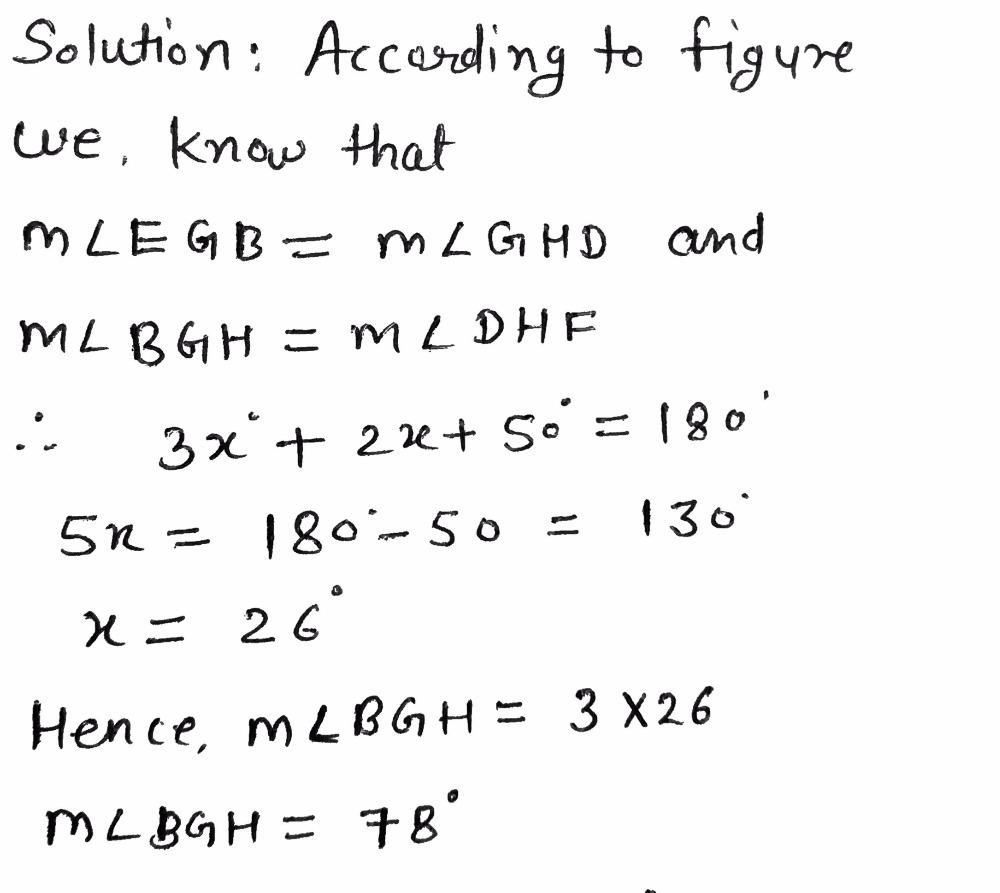 Solution: According to figure
we, know that
m∠EGB = m∠GHD and
m∠BGH = m∠DHF
∴ 3x° + 2x + 50° = 180°
5x = 180° - 50 = 130°
x = 26°
Hence, m∠BGH = 3 × 26
m∠BGH = 78°